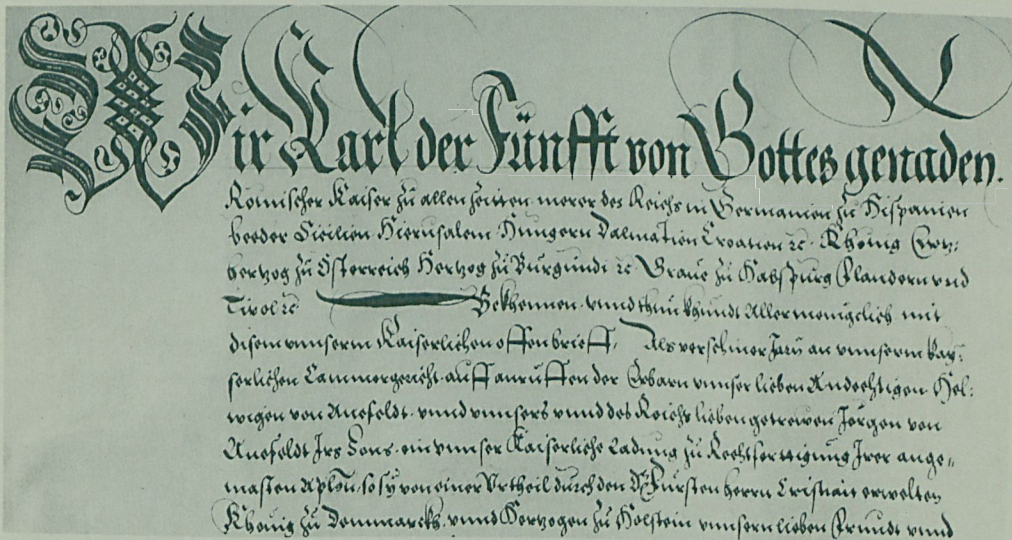 Wir Karl der Fünfft von Gottes genaden.
Römischer Kaiser zu allen zeitten merer des Reichs in Germanien zu Hispanien
beeder Sicilien Hierusalem Hungern Dalmatien Croatien ꝛc. Khönig Ertz:
hertzog zu Österreich Hertzog zu Burgundi ꝛc Graue zu Habspurg Flandern vnd
Tirol ꝛc Bekhennen vnnd thun khundt Allermenigclich mit
disem vnnserm Kaiserlichen offen brieff, Als verschiner Jarn an vnnserm Kay:
serlichen Cammergericht auff anruffen der Erbarn vnnser lieben Andechtigen Hel:
wigen von Anefeldt vnnd vnnsers vnnd des Reichs lieben getrewen Jörgen von
Anefeldt Irs Sons ein vnnser Kaiserliche Ladung zu Rechtfertigung Irer ange„
masten so sy von einer Vrtheil durch den Fürsten herrn Cristian erwelten
Khönig zu Dennmarckh vnnd Hertzogen zu Holstein vnnsern lieben Freundt vnnd